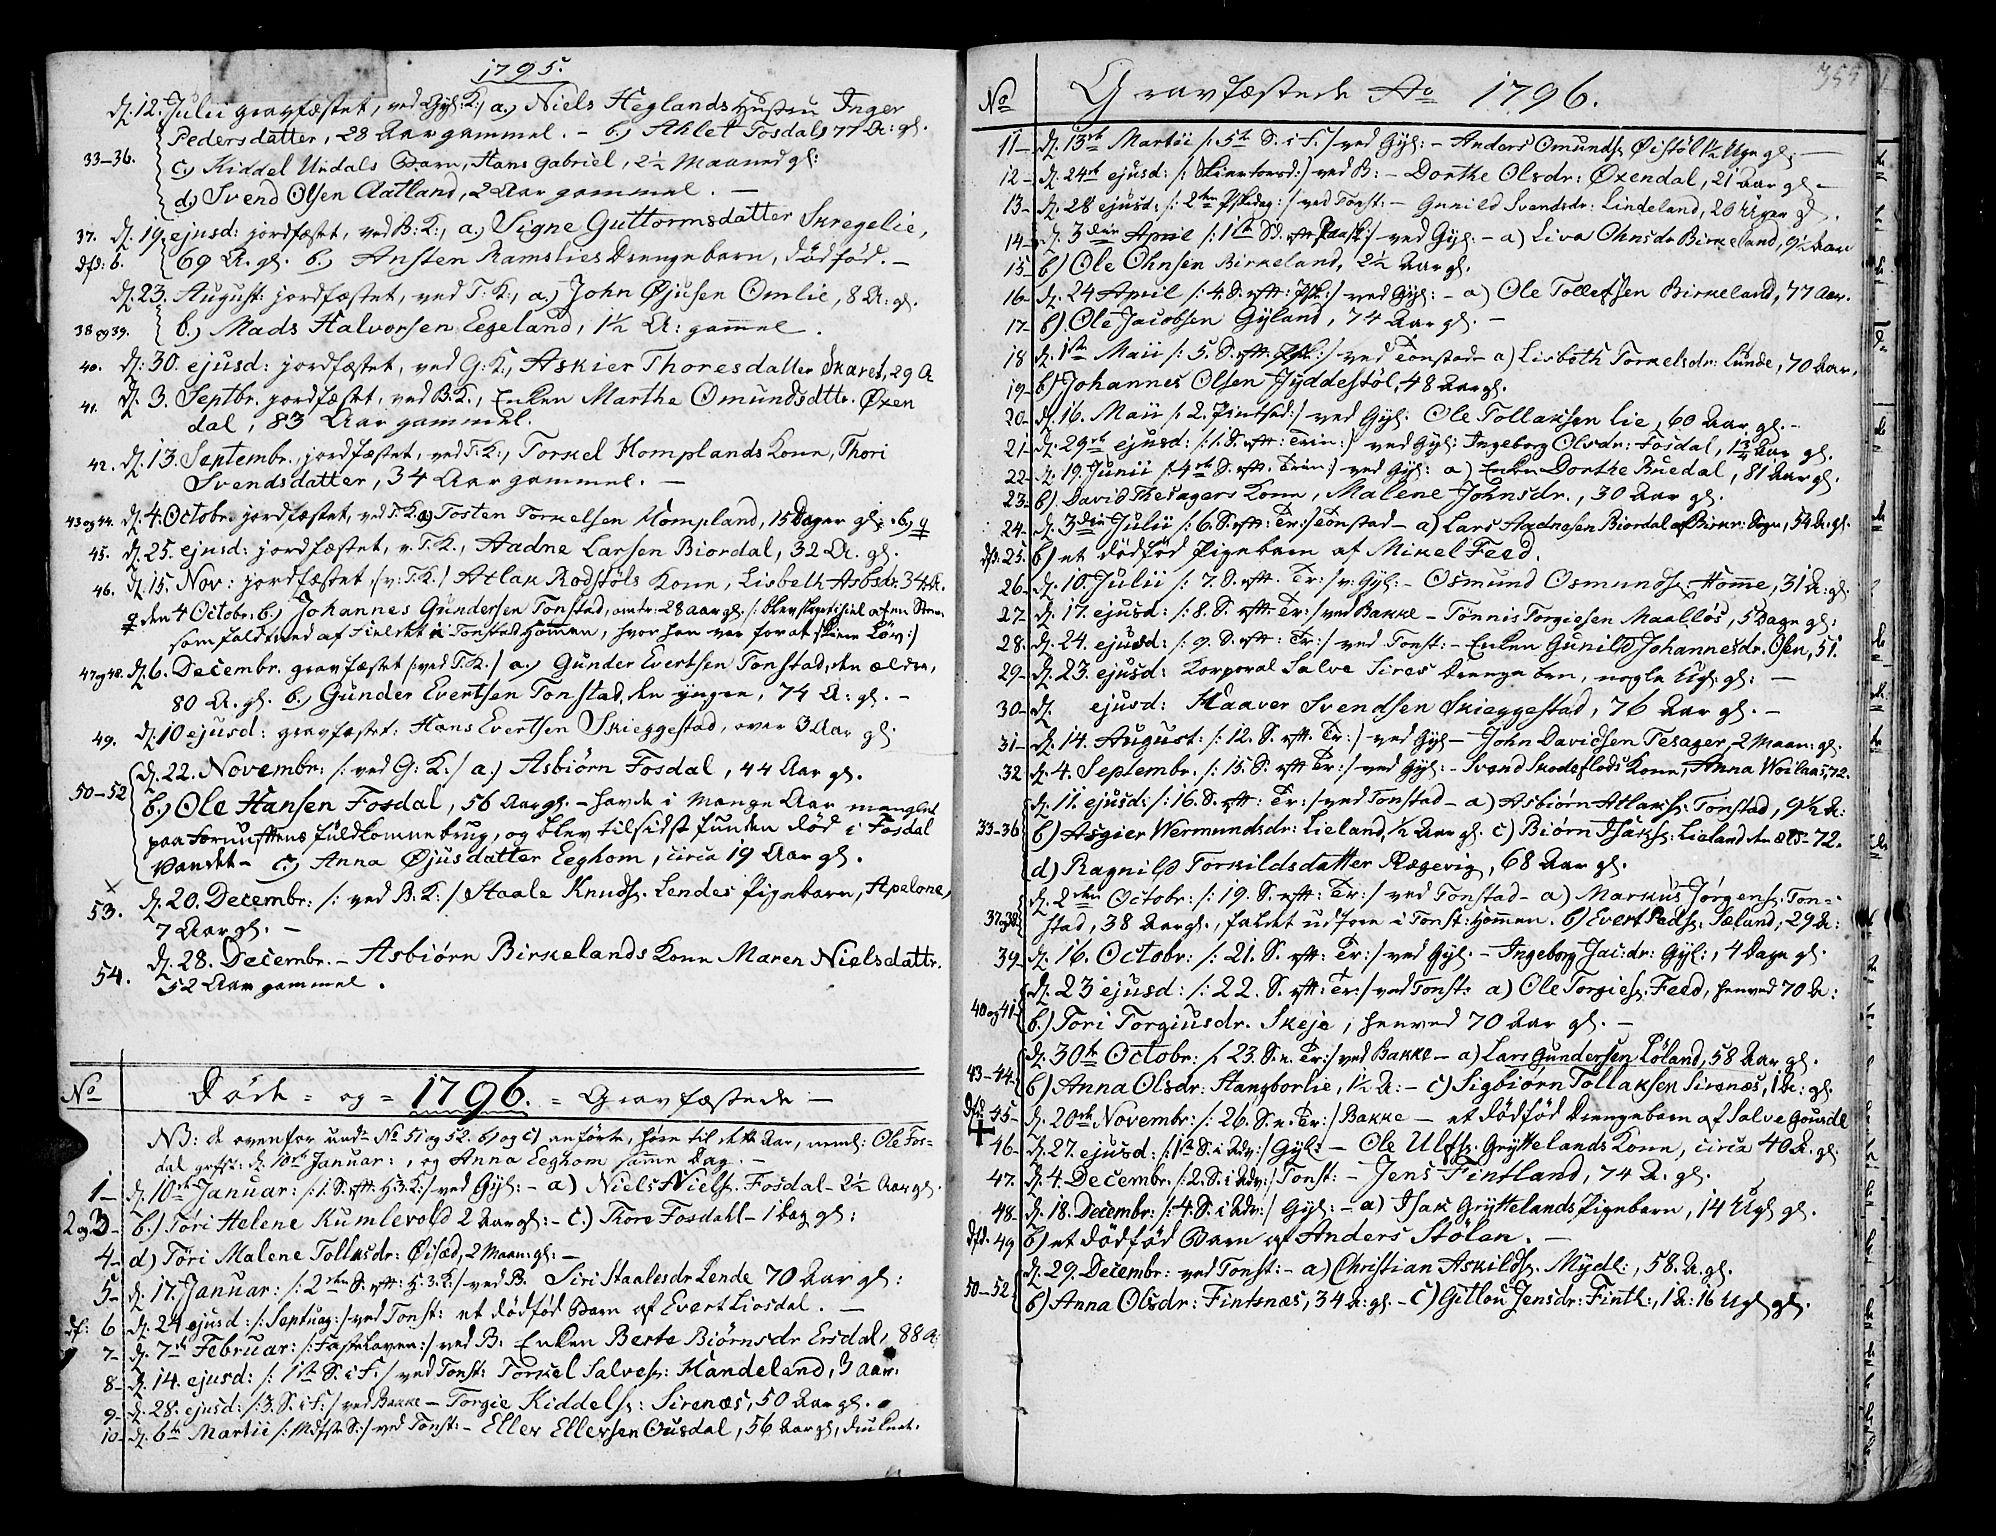 1795.
d: 12. Julii gravfæstet, ved Gyl: K:, a.) Niels Heglands Hustru Inger
Pedersdatter, 28 Aar gammel. - b.) Ahlet Fosdal, 77 A: gl.
33-36. c.) Kiddel Undals Barn, Hans Gabriel, 2½ Maaned gl:
d.) Svend Olsen Aatland, 2 Aar gammel. -
37. d: 19. ejusd: jordfæstet, ved B: K:, a.) Signe Guttormsdatter Skregelie,
dfd: 6. 69 A. gl. b.) Ansten Ramslies Drengebarn, dödfød. -
d: 23. August: jordfæstet, ved T: K:, a.) John Øjusen Omlie, 8 A: gl.
38 og 39. b.) Mads Halvorsen Eegeland, 1½ A: gammel.
40. d: 30. ejusd: jordfæstet, ved G: K:, Askier Thoresdatter Skaret, 29 A
41. d. 3. Septbr. jordfæstet, ved B. K., Enken Marthe Omundsdttr. Øxen
dal, 83 Aar gammel.
42. d. 13. Septembr. jordfæstet, ved T: K:, Torkel Homplands Kone, Thori
Svendsdatter, 34 Aar gammel. -
43 og 44. d: 4. Octobr. jordfæstet, ved T: K: a) Tosten Torkelsen Hompland, 15 Dager gl: - b.) ♀
45. d: 25. ejusd: jordfæstet, v. T: K., Aadne Larsen Biordal, 32 A. gl.
46. d: 15. Nov: jordfæstet /: v: T: K./ Atlak Rodstøls Kone, Lisbeth Asbsdr. 34 A.
♀ den 4 Octobr: b.) Johannes Gundersen Tonstad, omtr: 28 aar gl, /: blev ihielslagen af en Steen,
som faldt ned af Fieldet i Tonstad Hommen, hvor han var for at skiere Löv:/
47 og 48. d: 6. Decembr. gravfæstet /: ved T. K./ a.) Gunder Evertsen Tonstad, den ældre,
80 A. gl. b.) Gunder Evertsen Tonstad, den yngre, 74 A: gl. -
49. d: 10 ejusd: gravfæstet: Hans Evertsen Skieggestad, over 3 Aar gl.
d. 22. Novembr: /: ved G: K:/ a.) Asbiørn Fosdal, 44 Aar gl.
50-52 b.) Ole Hansen Fosdal, 56 Aar gl. - havde i mange Aar manglet
paa Fornuftens fuldkomne brug, og blev tilsidst funden død i Fosdal
Vandet - c.) Anna Øjusdatter Eeghom, circa 19 Aar gl.
x
53. d. 20. Decembr: /: ved B. K:/ Staale Knuds. Lendes Pigebarn, Apelone,
7 Aar gl. -
54. d. 28. Decembr. - Asbiørn Birkelands Kone Maren Nielsdattr.
52 Aar gammel.
No Döde = og = 1796. = Gravfæstede -
NB: de ovenfor under No 51 og 52. b) og c) anførte, høre til dette Aar, neml: Ole Fos-
dal grfst: d. 10de Januar:, og Anna Eeghom samme Dag. -
1- d. 10de Januar: /: 1. S. eft: H 3. K:/ ved Gyl: - a) Niels Niels. Fosdal - 2½ Aar gl.
2 og 3- b.) Töri Helene Kumlevold 2 Aar gl: - c.) Thore Fosdahl - 1 Dag gl:
4- d) Töri Malene Tollaksdr: Øisæd, 2 Maan: gl: -
5- d: 17. Januar: /: 2den S. eft: H. 3. K:/ ved B. Siri Staalesdr Lende 70 Aar gl:
df: 6 d. 24 ejusd: /: Septuag:/ ved Tonst: et dödfød Barn af Evert Liosdal. -
7- d. 7de Februar: /: Fastelaven:/ ved B: Enken Berte Biørnsdr Ersdal, 88 A:
8- d. 14. ejusd: /: 1ste S. i F:/ ved Tonst: Torkel Salves: Handeland, 3 Aar.
9- d. 28. ejusd: /: 3. S. i F:/ ved Bakke - Torgie Kiddels: Sirenæs, 50 Aar gl.
10- d. 6te Martii /: Midfste S:/ ved Tonst: - Eller Ellersen Ousdal, 56 Aar gl, druknet.
No Gravfæstede Ao 1796.
11- d. 13de Martii /: 5te S. i F:/ ved Gyl: - Anders Omunds. Øistöl 1½ Uge gl. -
12- d. 24de ejusd: /: Skiertorsd:/ ved B: - Dorthe Olsdr: Øxendal, 21 Aar gl -
13- d. 28 ejusd: /: 2den Pskedag:/ ved Tonst: - Gunild Svendsdr: Lindeland, 20 Uger gl.
14- d. 3die April /: 1ste Sd. eft Paask:/ ved Gyl: - a) Liva Ohnsdr Birkeland, 9½ Aar
15- b) Ole Ohnsen Birkeland, 2½ Aar gl.
16- d. 24 April /: 4. S. eft: Psk:/ ved Gyl: - a) Ole Tollefsen Birkeland, 77 Aar.
17- b) Ole Jacobsen Gyland, 74 Aar gl. -
18 d. 1ste Maii /: 5. S. eft. Psk:/ ved Tonstad - a) Lisbeth Torkelsdr: Lunde, 70 Aar,
19- b) Johannes Olsen Jyddestöl, 48 Aar gl.
20- d. 16. Maii /: 2. Pintsed:/ ved Gyl. Ole Tollaksen Lie, 60 Aar gl. -
21- d. 29de ejusd: /: 1. S. eft: Trin:/ ved Gyl: Ingeborg Olsdr: Fosdal, 1¾ Aar gl.
22- d. 19. Junii /: 4de S. eft. Trin:/ ved Gyl: a) Enken Dorthe Ruedal, 81 Aar gl.
23- b) David Thesagers Kone, Malene Johnsdr., 30 Aar gl.
24- d. 3die Julii /: 6. S. eft: Tr:/ Tonstad - a) Lars Aadnesen Biordal af Birkr: Sogn, 54 A. gl.
dfd. 25. b) et dödfød Pigebarn af Mikel Feed.
26- d. 10. Julii /: 7. S. eft. Tr:/ v. Gyl: - Osmund Osmunds. Homme, 31 A: gl.
27- d. 17. ejusd: /: 8. S. eft: Tr:/ ved Bakke - Tönnis Torgiesen Maallös, 5 Dage gl:
28- d. 24. ejusd: /: 9. S. eft: Tr:/ ved Tonst: - Enken Gunild Johannesdr. Osen, 51.
29- d. 23. ejusd: Korporal Salve Sires Drengebrn, nogle Ug: gl: -
30- d. ejusd: Haaver Svendsen Skieggestad, 76 Aar gl. -
31- d. 14. August: /: 12. S. eft. Tr:/ ved Gyl - John Davidsen Tesager, 2 Maan: gl.
32 d. 4. Septembr. /: 15. S. eft Tr:/ ved Gyl: - Svend Skodeflods Kone, Anna Woilaas, 72.
d. 11. ejusd: /: 16. S. eft: Tr:/ ved Tonstad - a) Asbiørn Atlaks: Tonstad, 9½ A:
33-36 b) Asgier Wermundsdr: Lieland, ½ Aar gl. c) Biørn Isaks: Lieland den æld - 72.
d) Ragnild Torkildsdatter Rægevig, 68 Aar gl.
d. 2den Octobr: /: 19. S. eft: Tr:/ ved Tonstad - a) Markus Jörgens. Ton=
37-38 stad, 38 Aar gl., faldet udfore i Tonst: Hommen. b) Evert Peds. Seland, 29 A:
39 d. 16. Octobr: /: 21. S. eft: Tr:/ ved Gyl. - Ingeborg Jac: dr: Gyl:, 4 Dage gl.
d. 23 ejusd: /: 22. S. eft: Tr:/ ved Tonst: a) Ole Torgies. Feed, henved 70 A:
40 og 41 b.) Tori Torgiusdr. Skeje, henved 70 Aar gl. -
d. 30te Octobr: /: 23. S. e. Tr:/ ved Bakke - a) Lars Gundersen Löland, 58 Aar gl.
43-44 b) Anna Olsdr: Stangborlie, 1½ A: - c) Sigbiørn Tollaksen Sirenæs, 1 A: gl.
Dfd 45- d. 20de Novembr: /: 26. S. e. Tr:/ Bakke - et dödfød Drengebarn af Salve Gousdl
46- d. 27. ejusd: /: 1ste S. i Adv:/ Gyl: - Ole Ulfs. Gryttelands Kone, circa 40 A. gl:
47. d. 4. Decembr. /: 2. S. i Adv:/ Tonst: - Jens Fintland, 74 A. gl.
48. d. 18. Decembr: /: 4. S. i Adv:/ Gyl: - a) Isak Gryttelands Pigebarn, 14 Ug gl.
dfd. 49 b) et dödfød Barn af Anders Stölen. -
d. 29. Decembr: ved Tonst: - a) Christian Askilds. Mydl:, 58. A. gl.
50-52 b) Anna Olsdr: Fintsnæs, 34 A: gl. - c) Gitlou Jensdr: Fintl:, 1 A: 16 Ug gl.